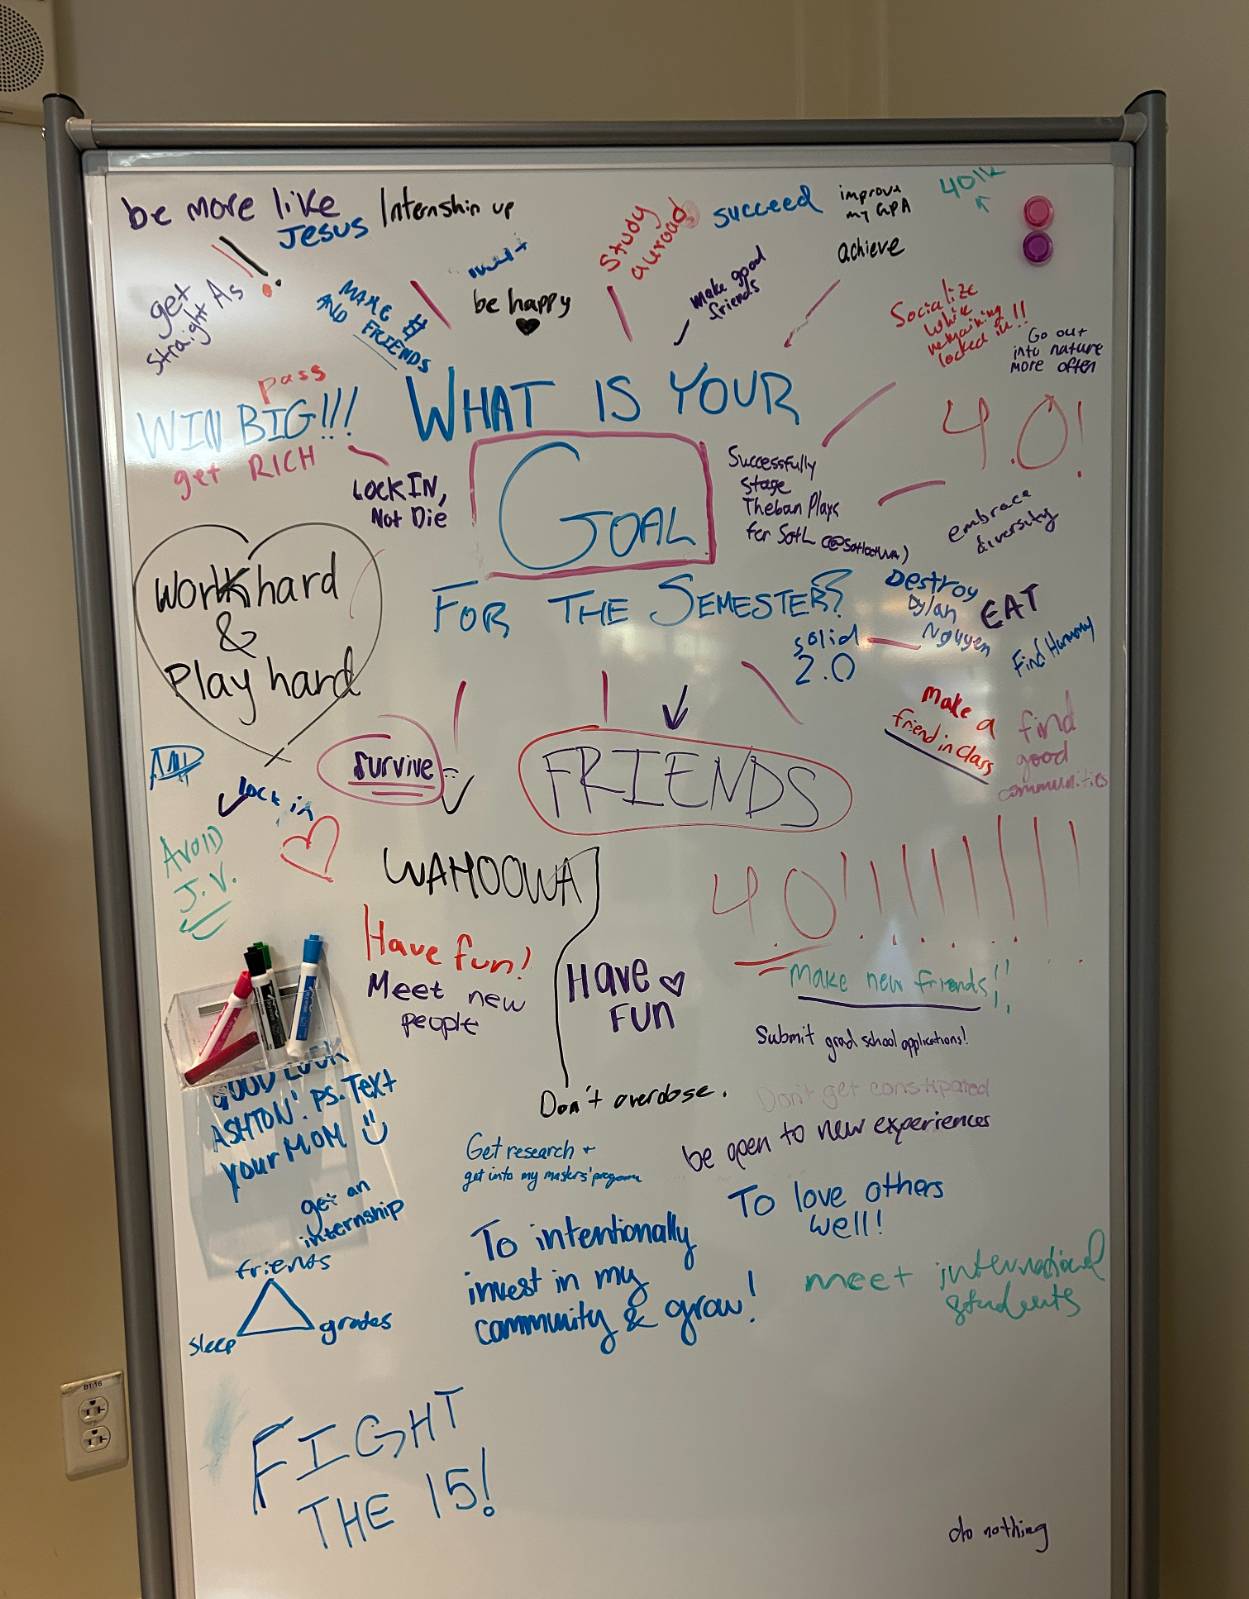 be more like
Jesus
Internship up
study
auroad
succeed
improve
my GPA
401k
achieve
get
straight As
MAKE #
AND FRIENDS
be happy
make good
friends
Socialize
while
remaining
locked in!!
Go out
into nature
more often
pass
WIN BIG!!!
get RICH
WHAT IS YOUR
GOAL
FOR THE SEMESTER?
LOCK IN,
Not Die
Successfully
stage
Theban Plays
for SotL
4.0!
embrace
diversity
Work hard
&
Play hard
solid
2.0
Destroy
Dylan
Nguyen
EAT
Find Harmony
make a
friend in class
find
good
communities
survive
FRIENDS
lock in
AVOID
J.V.
WAHOOWA
4.0!!!!!!!
Have fun!
Meet new
people
Have
FUN
Make new friends!!
Submit grad school applications!
GOOD LOOK
ASHTON! PS. Text
your MOM
Don't overdose.
Don't get constipated
be open to new experiences
Get research +
get into my masters' program
get an
internship
To love others
well!
To intentionally
invest in my
community & grow!
meet international
students
friends
sleep
grades
FIGHT
THE 15!
do nothing
B1-16